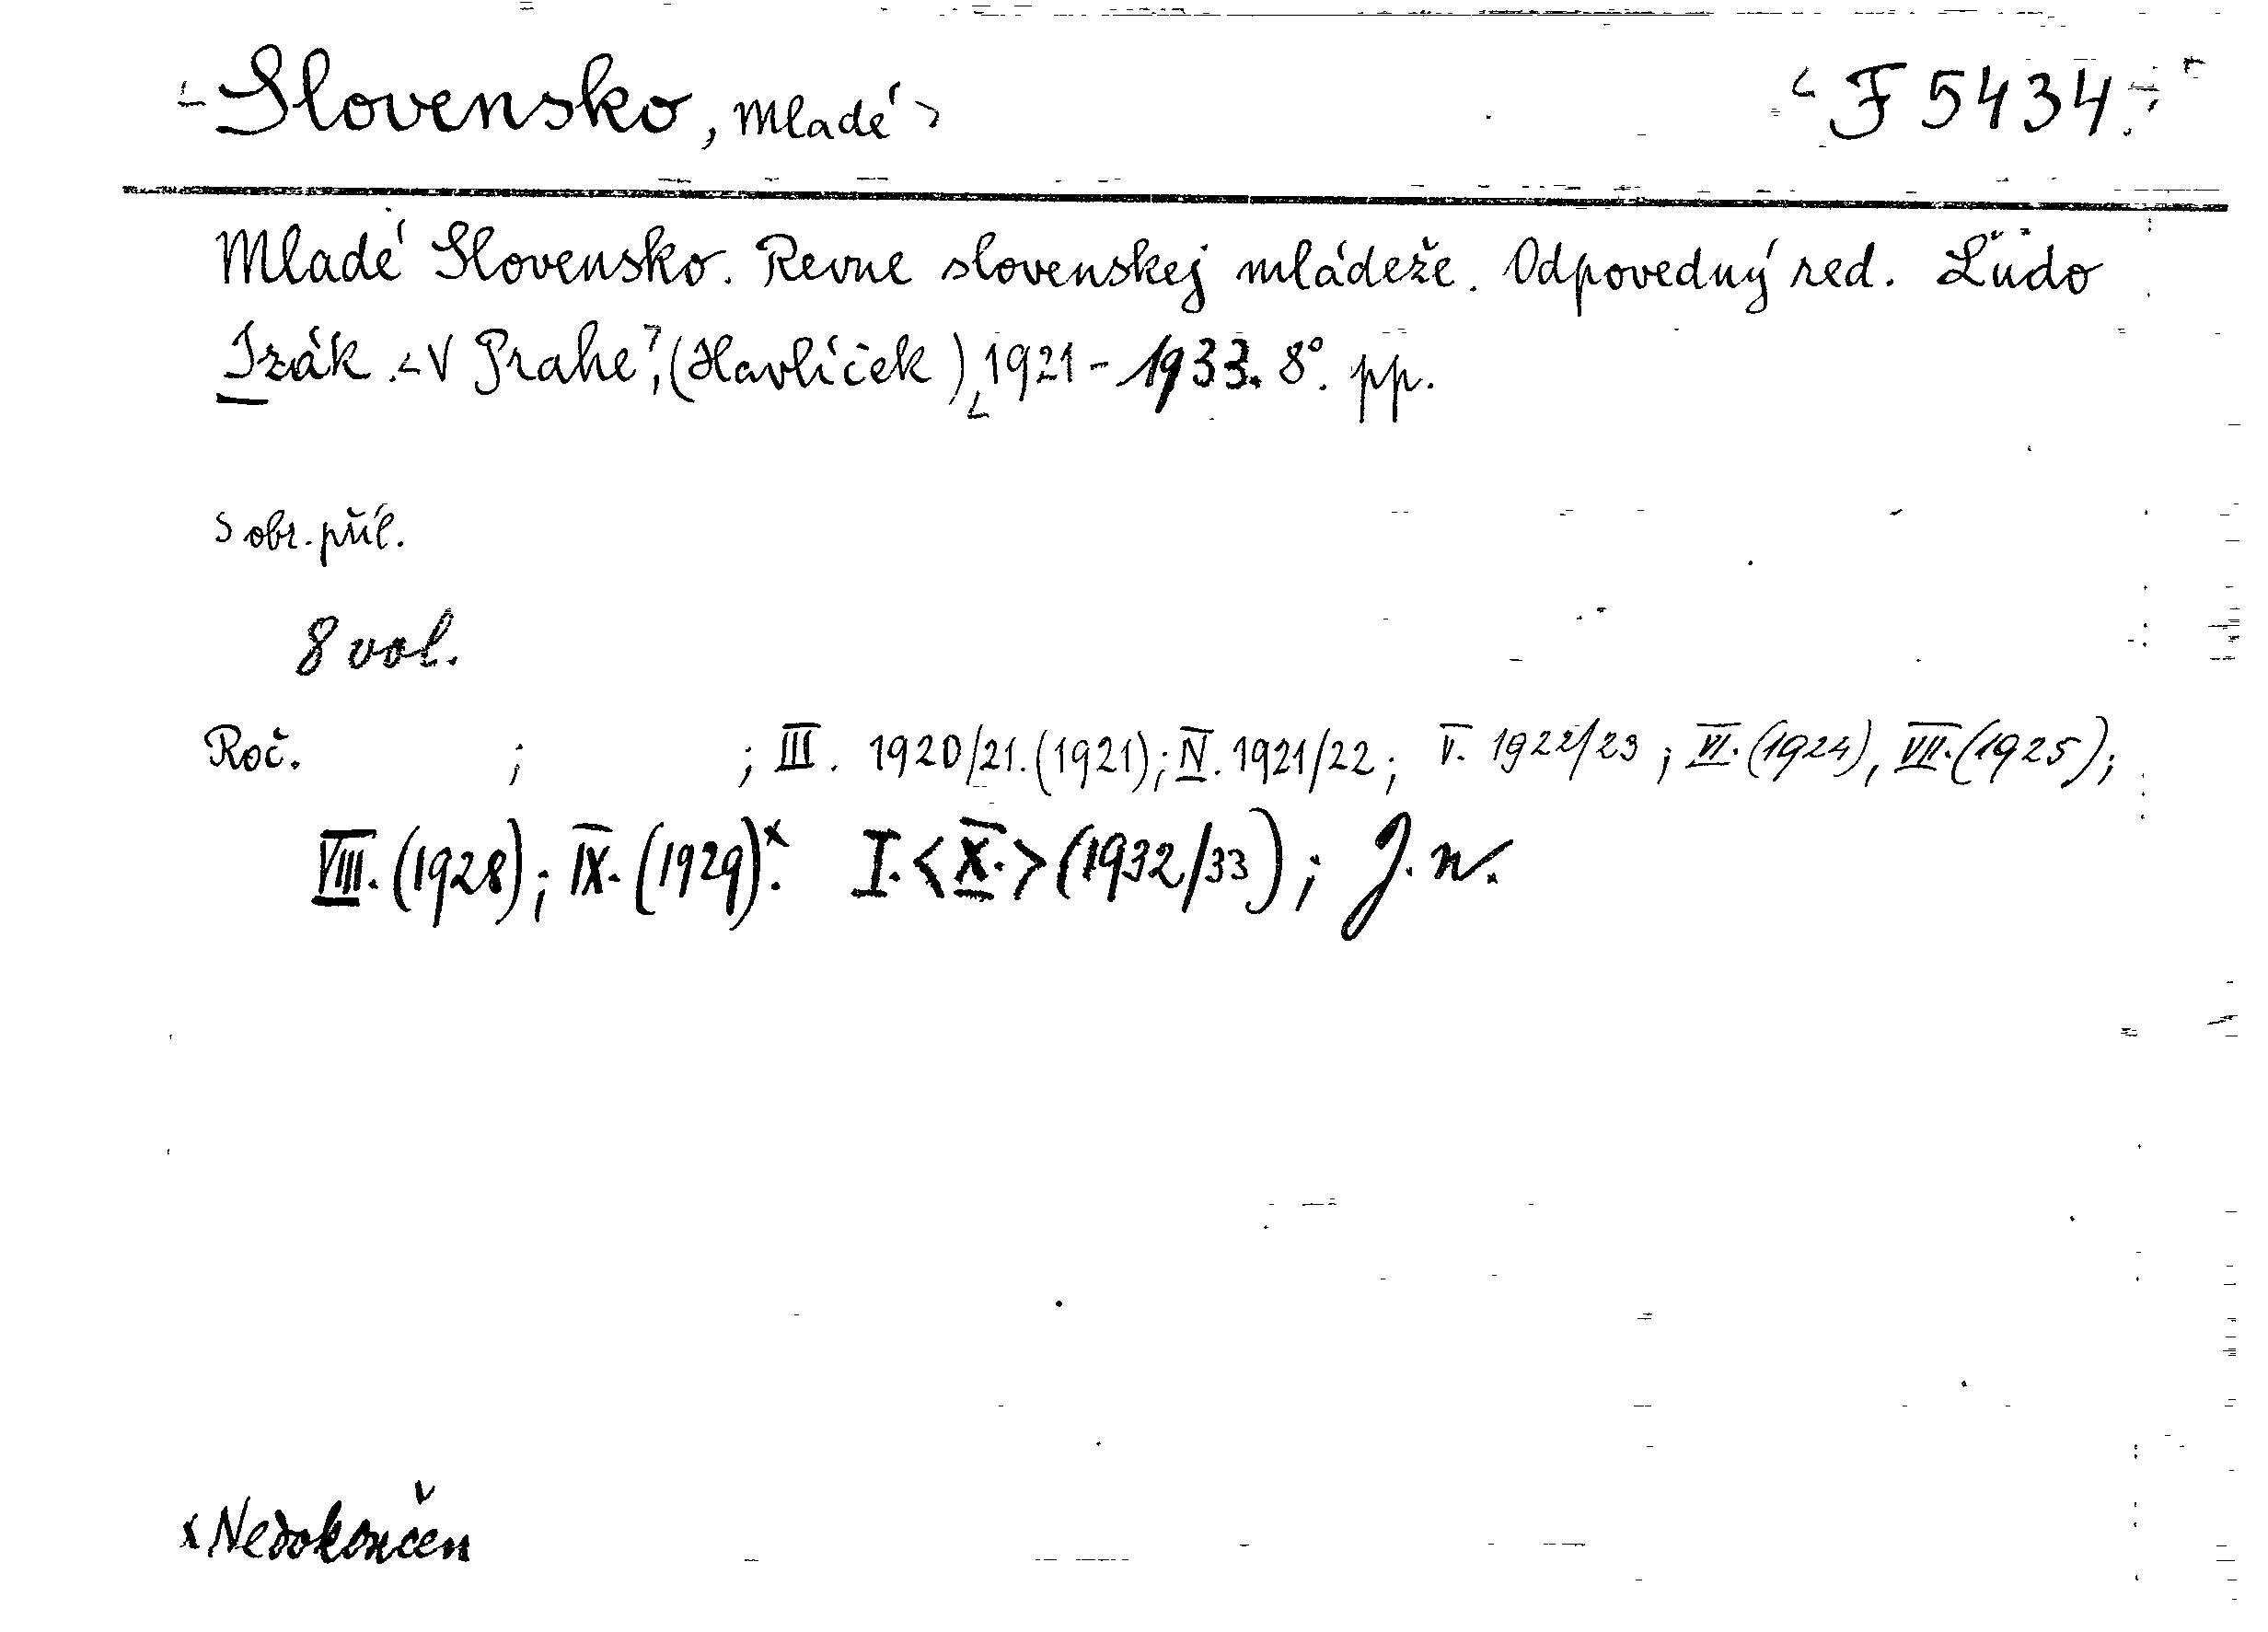 <Slovensko, Mladé> <F 5434.>
Mladé Slovensko. Revue slovenskej mládeže. Odpovedný red. Ľudo
Izák. <V Prahe>, (Havlíček), 1921-1933. 8°. pp.
S obr. příl.
8 vol.
Roč. ; ; III. 1920/21. (1921); IV. 1921/22; V. 1922/23; VI. (1924), VII. (1925);
VIII. (1928); IX. (1929)x. I. <X.> (1932/33); J. n.
x Nedokončen